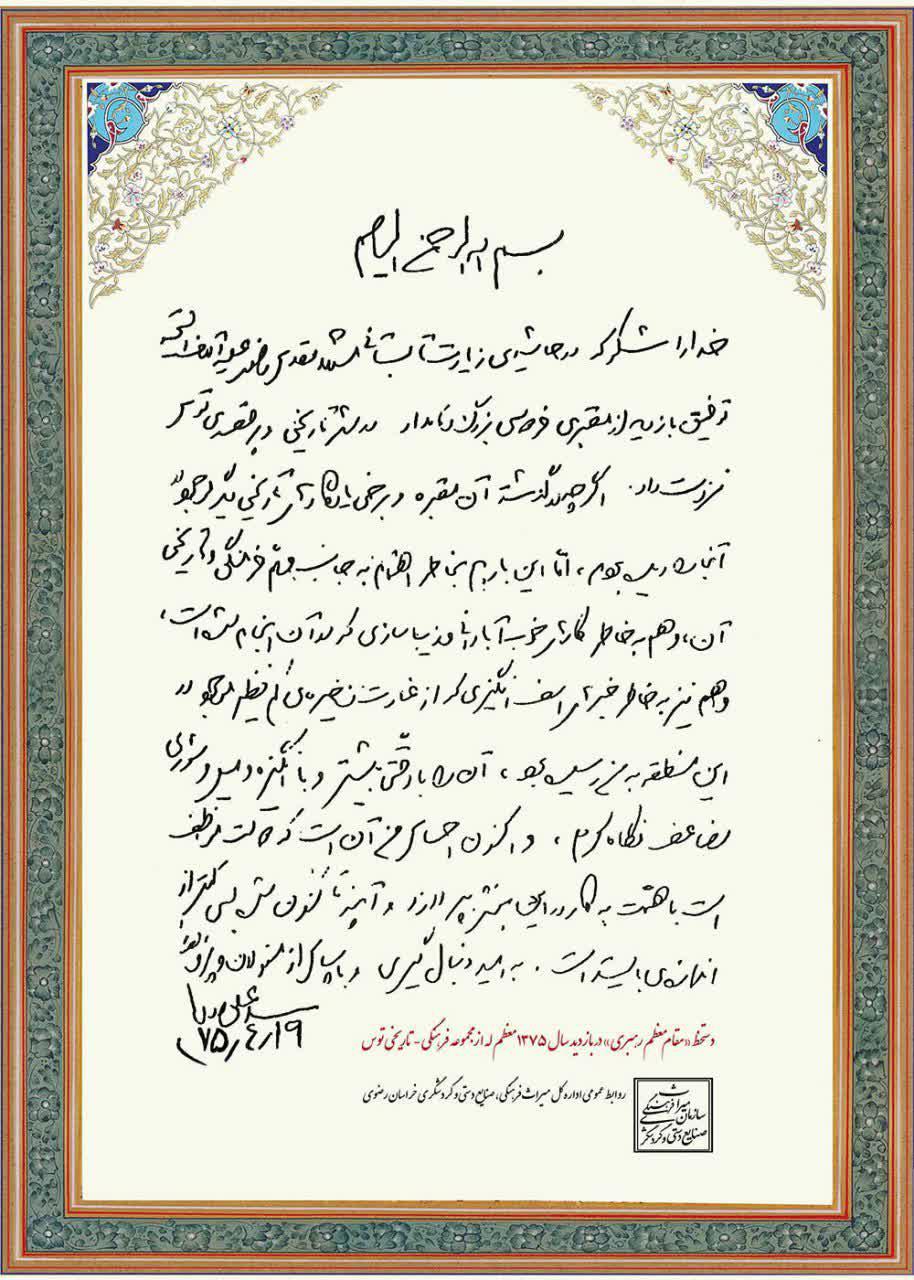 بسم الله الرحمن الرحیم
خدا را شکر که در حاشیه‌ی زیارت تابستانی مشهد مقدس رضوی علیه آلاف التحیة
توفیق بازدید از مقبره‌ی فردوسی بزرگ و نامدار در شهر تاریخی و پرقصه‌ی توس
نیز دست داد. اگر چه در گذشته آن مقبره و برخی یادگارهای تاریخی دیگر موجود در
آنجا را دیده بودم، امّا این بار هم بخاطر اهتمام به جانب مهم فرهنگی و تاریخی
آن، و هم به خاطر کارهای خوب آبادانی و زیباسازی که در آن انجام شده است،
و هم نیز به خاطر خبرهای اسف انگیزی که از غارت ذخیره‌ی کم نظیر موجود در
این منطقه به من رسیده بود، آن را با دقّتی بیشتر و با انگیزه و امید و شوری
مضاعف نگاه کردم، و اکنون احساس من آن است که دولت موظف
است با همّت به کار در این بخش بپردازد و آنچه تا کنون شده بسی کمتر از
اندازه‌ی بایسته است. به امید دنبال گیری و با سپاس از مسئولان
سید علی خامنه‌ای
۷۵/۴/۱۹
دستخط «مقام معظم رهبری» در بازدید سال ۱۳۷۵ معظم له از مجموعه فرهنگی - تاریخی توس
روابط عمومی اداره کل میراث فرهنگی، صنایع دستی و گردشگری خراسان رضوی
سازمان میراث فرهنگی
صنایع دستی و گردشگری